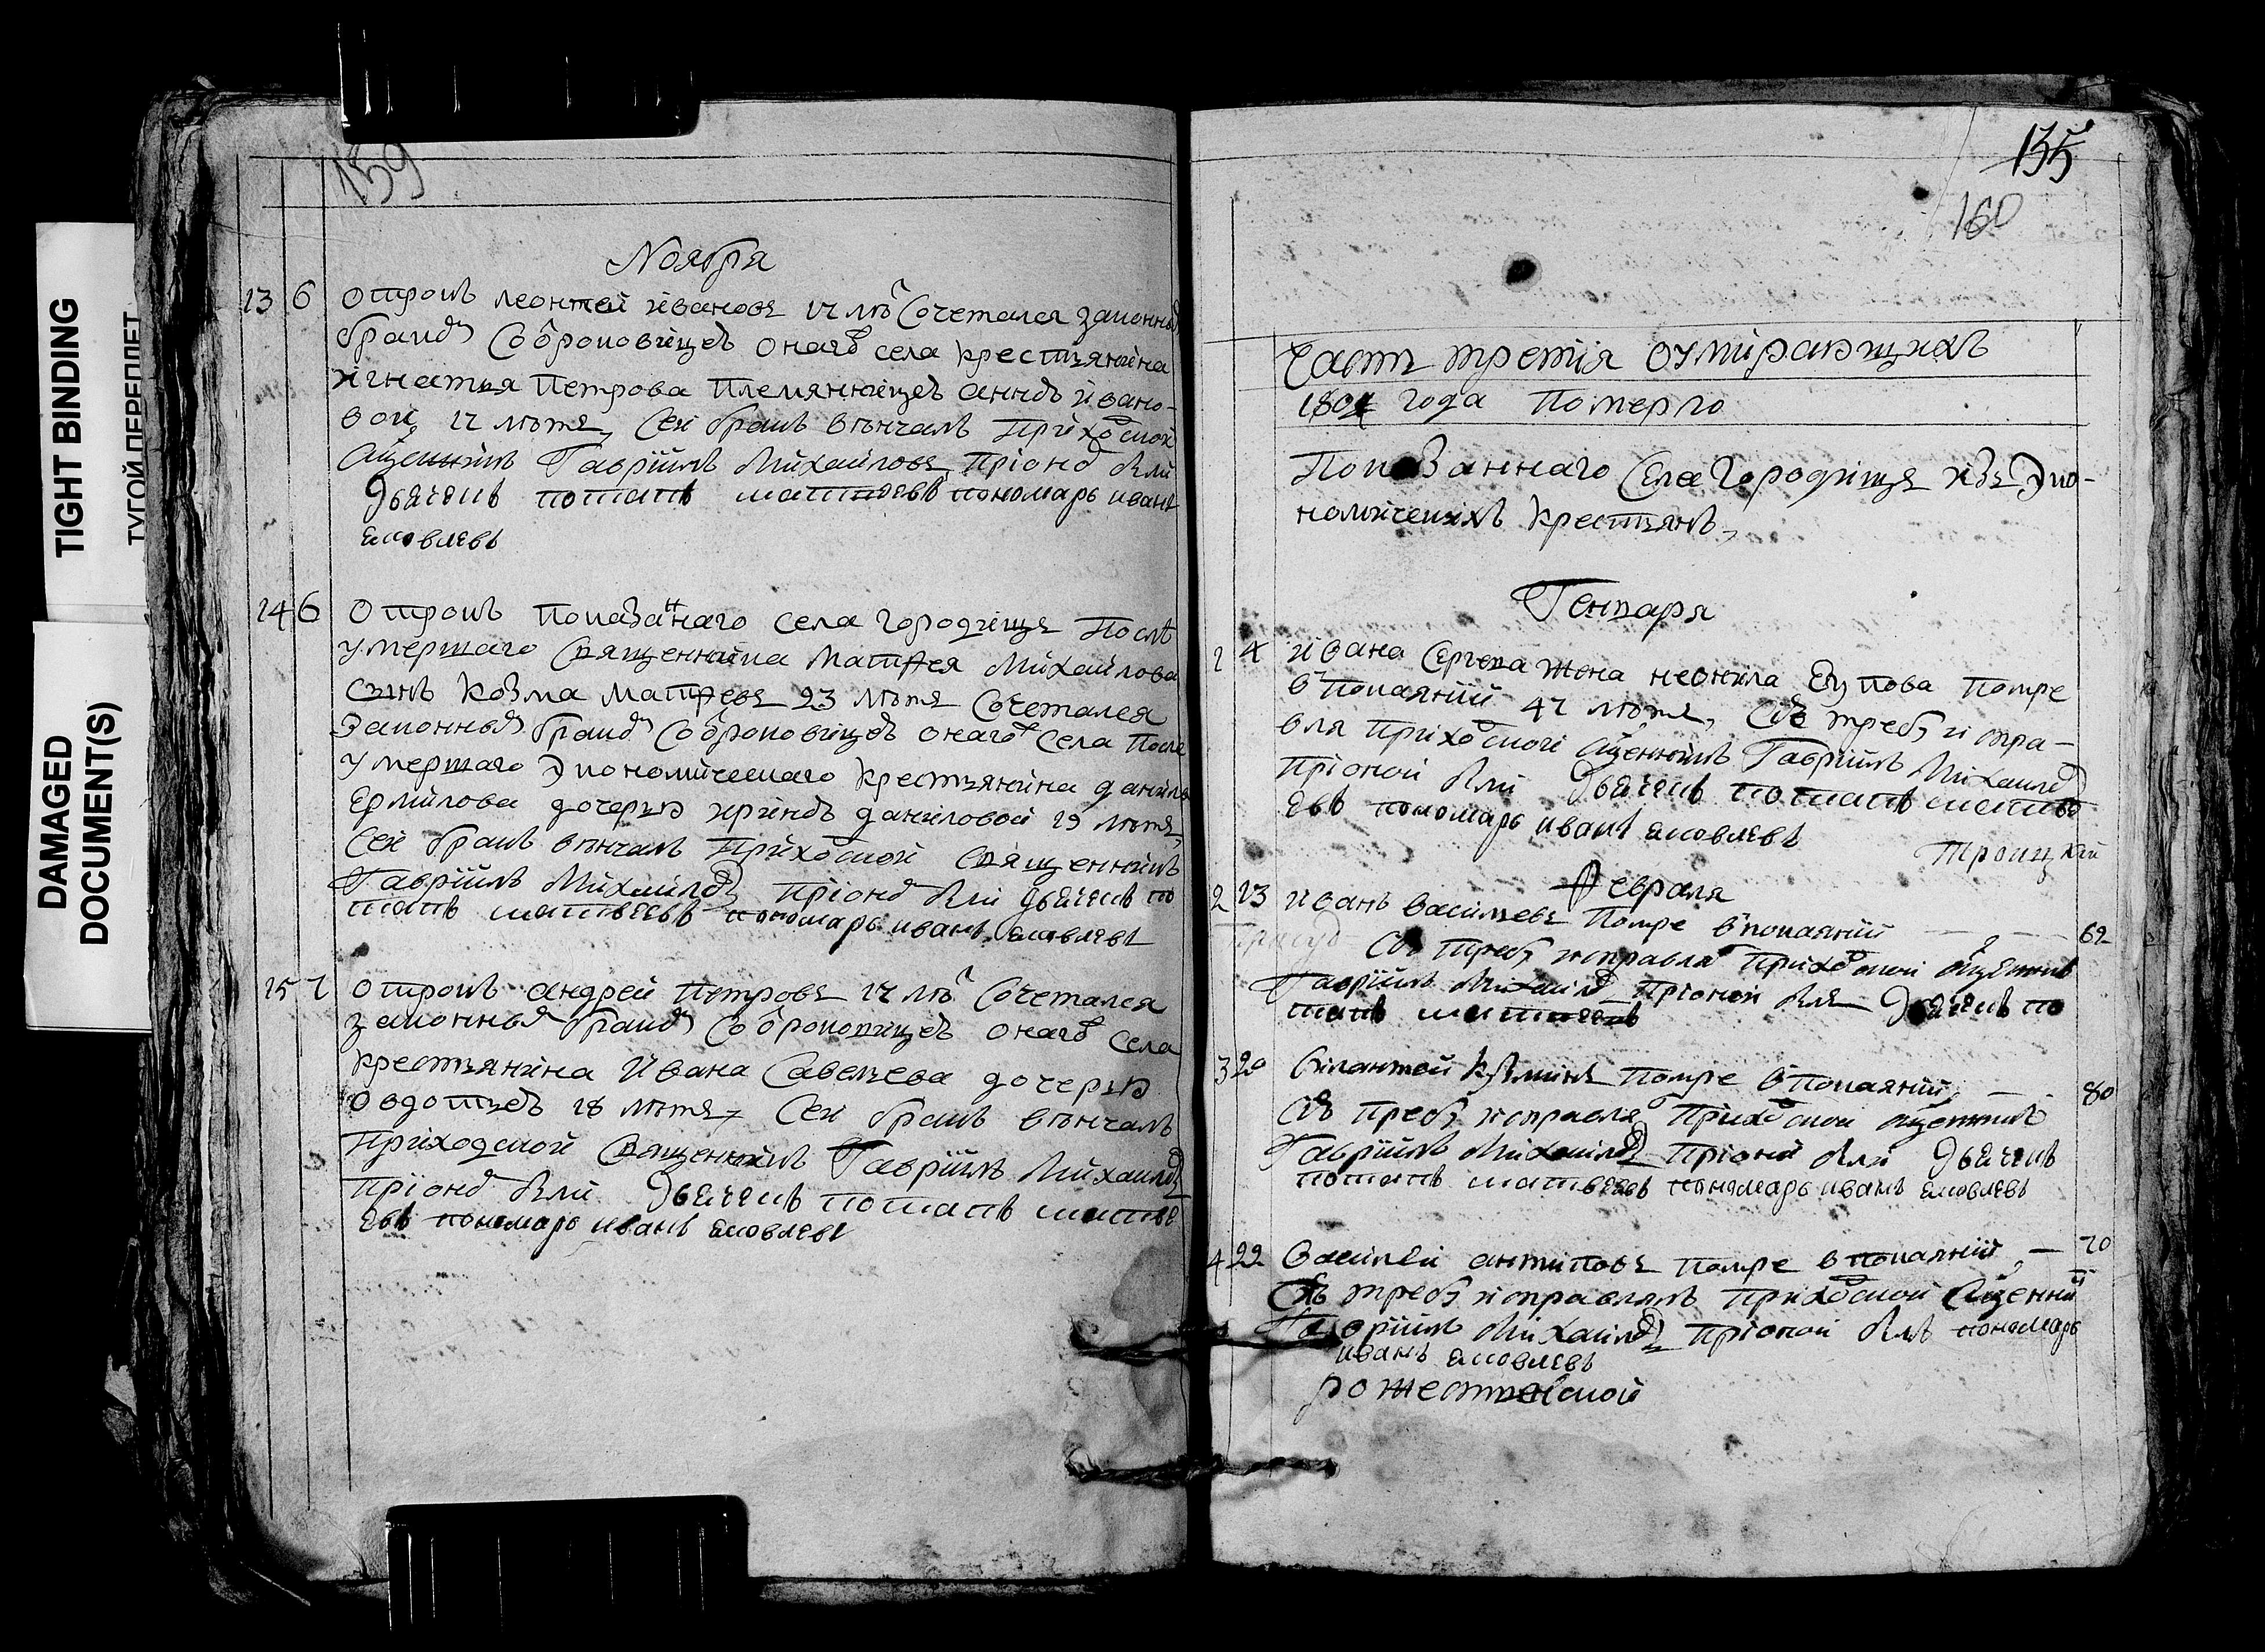 TIGHT BINDING
ТУГОЙ ПЕРЕПЛЕТ
DAMAGED
DOCUMENT(S)
159
Ноября
13 6 отрокъ леонтей ивановъ 17 лѣт Сочетался законны
бракѡ Со отроковицеѣ онаго села крестьянина
игнатья Петрова Племянницеѣ аннѣ ивано-
вой 17 лѣтъ, Сей бракъ вѣнчалъ Приходской
Сщенникъ Гаврiилъ Михаиловъ Прiонѡ были
дьячекъ потапъ матвѣевъ пономарь иванъ
яковлевъ
14 6 отрокъ показаннаго села городища После
умершаго Священника Матфея Михаилова
сынъ козма матфеевъ 23 лѣтъ Сочетался
Законнымъ бракѡ Со отроковицеѣ онаго села После
умершаго Экономическаго крестьянина данила
Ермилова дочерью иринѣ даниловой 19 лѣтъ
Сей бракъ вѣнчалъ Приходской Священникъ
Гаврiилъ Михаилѡ Прiонѡ были дьячекъ по
тапъ матвѣевъ пономарь иванъ яковлевъ
15 7 отрокъ андрей Петровъ 17 лѣт Сочетался
законным бракѡ Со отроковицеѣ онаго села
крестьянина Ивана Савельева дочерью
овдотьеѣ 18 лѣтъ, Сей бракъ вѣнчалъ
Приходской Священникъ Гаврiилъ Михаилѡ
Прiонѡ были дьячекъ потапъ матвѣ
евъ пономарь иванъ яковлевъ
155
160
Часть третiя оумирающихъ
1801 года Померло
Показаннаго Села Городища изъ Эко-
номическихъ крестьянъ,
Генваря
1 4 ивана Сергеева жена неонила Помре
в покаянiй 47 лѣтъ, Сiѣ требу испра-
вля Приходской Сщенникъ Гаврiилъ Михаилѡ
Прiоной были дьячекъ потапъ матвѣ
евъ пономарь иванъ яковлевъ
Троицкий
Февраля
2 13 иванъ васильевъ Помре в покаянiй — 62
Сiѣ требу исправлял Приходской Сщенникъ
Гаврiилъ Михаилѡ Прiоной были дьячекъ по
тапъ матвеевъ
3 20 Помре в покаянiй, — 80
Сiѣ требу исправля Приходской Сщенникъ
Гаврiилъ Михаилѡ Прiоной были дьячекъ
потапъ матвѣевъ пономарь иванъ яковлевъ
4 22 Василей антиповъ Помре в покаянiй, — 70
Сiѣ требу исправлялъ Приходской Сщенникъ
Гаврiилъ Михаилѡ Прiоной былъ пономарь
иванъ яковлевъ
рожественской